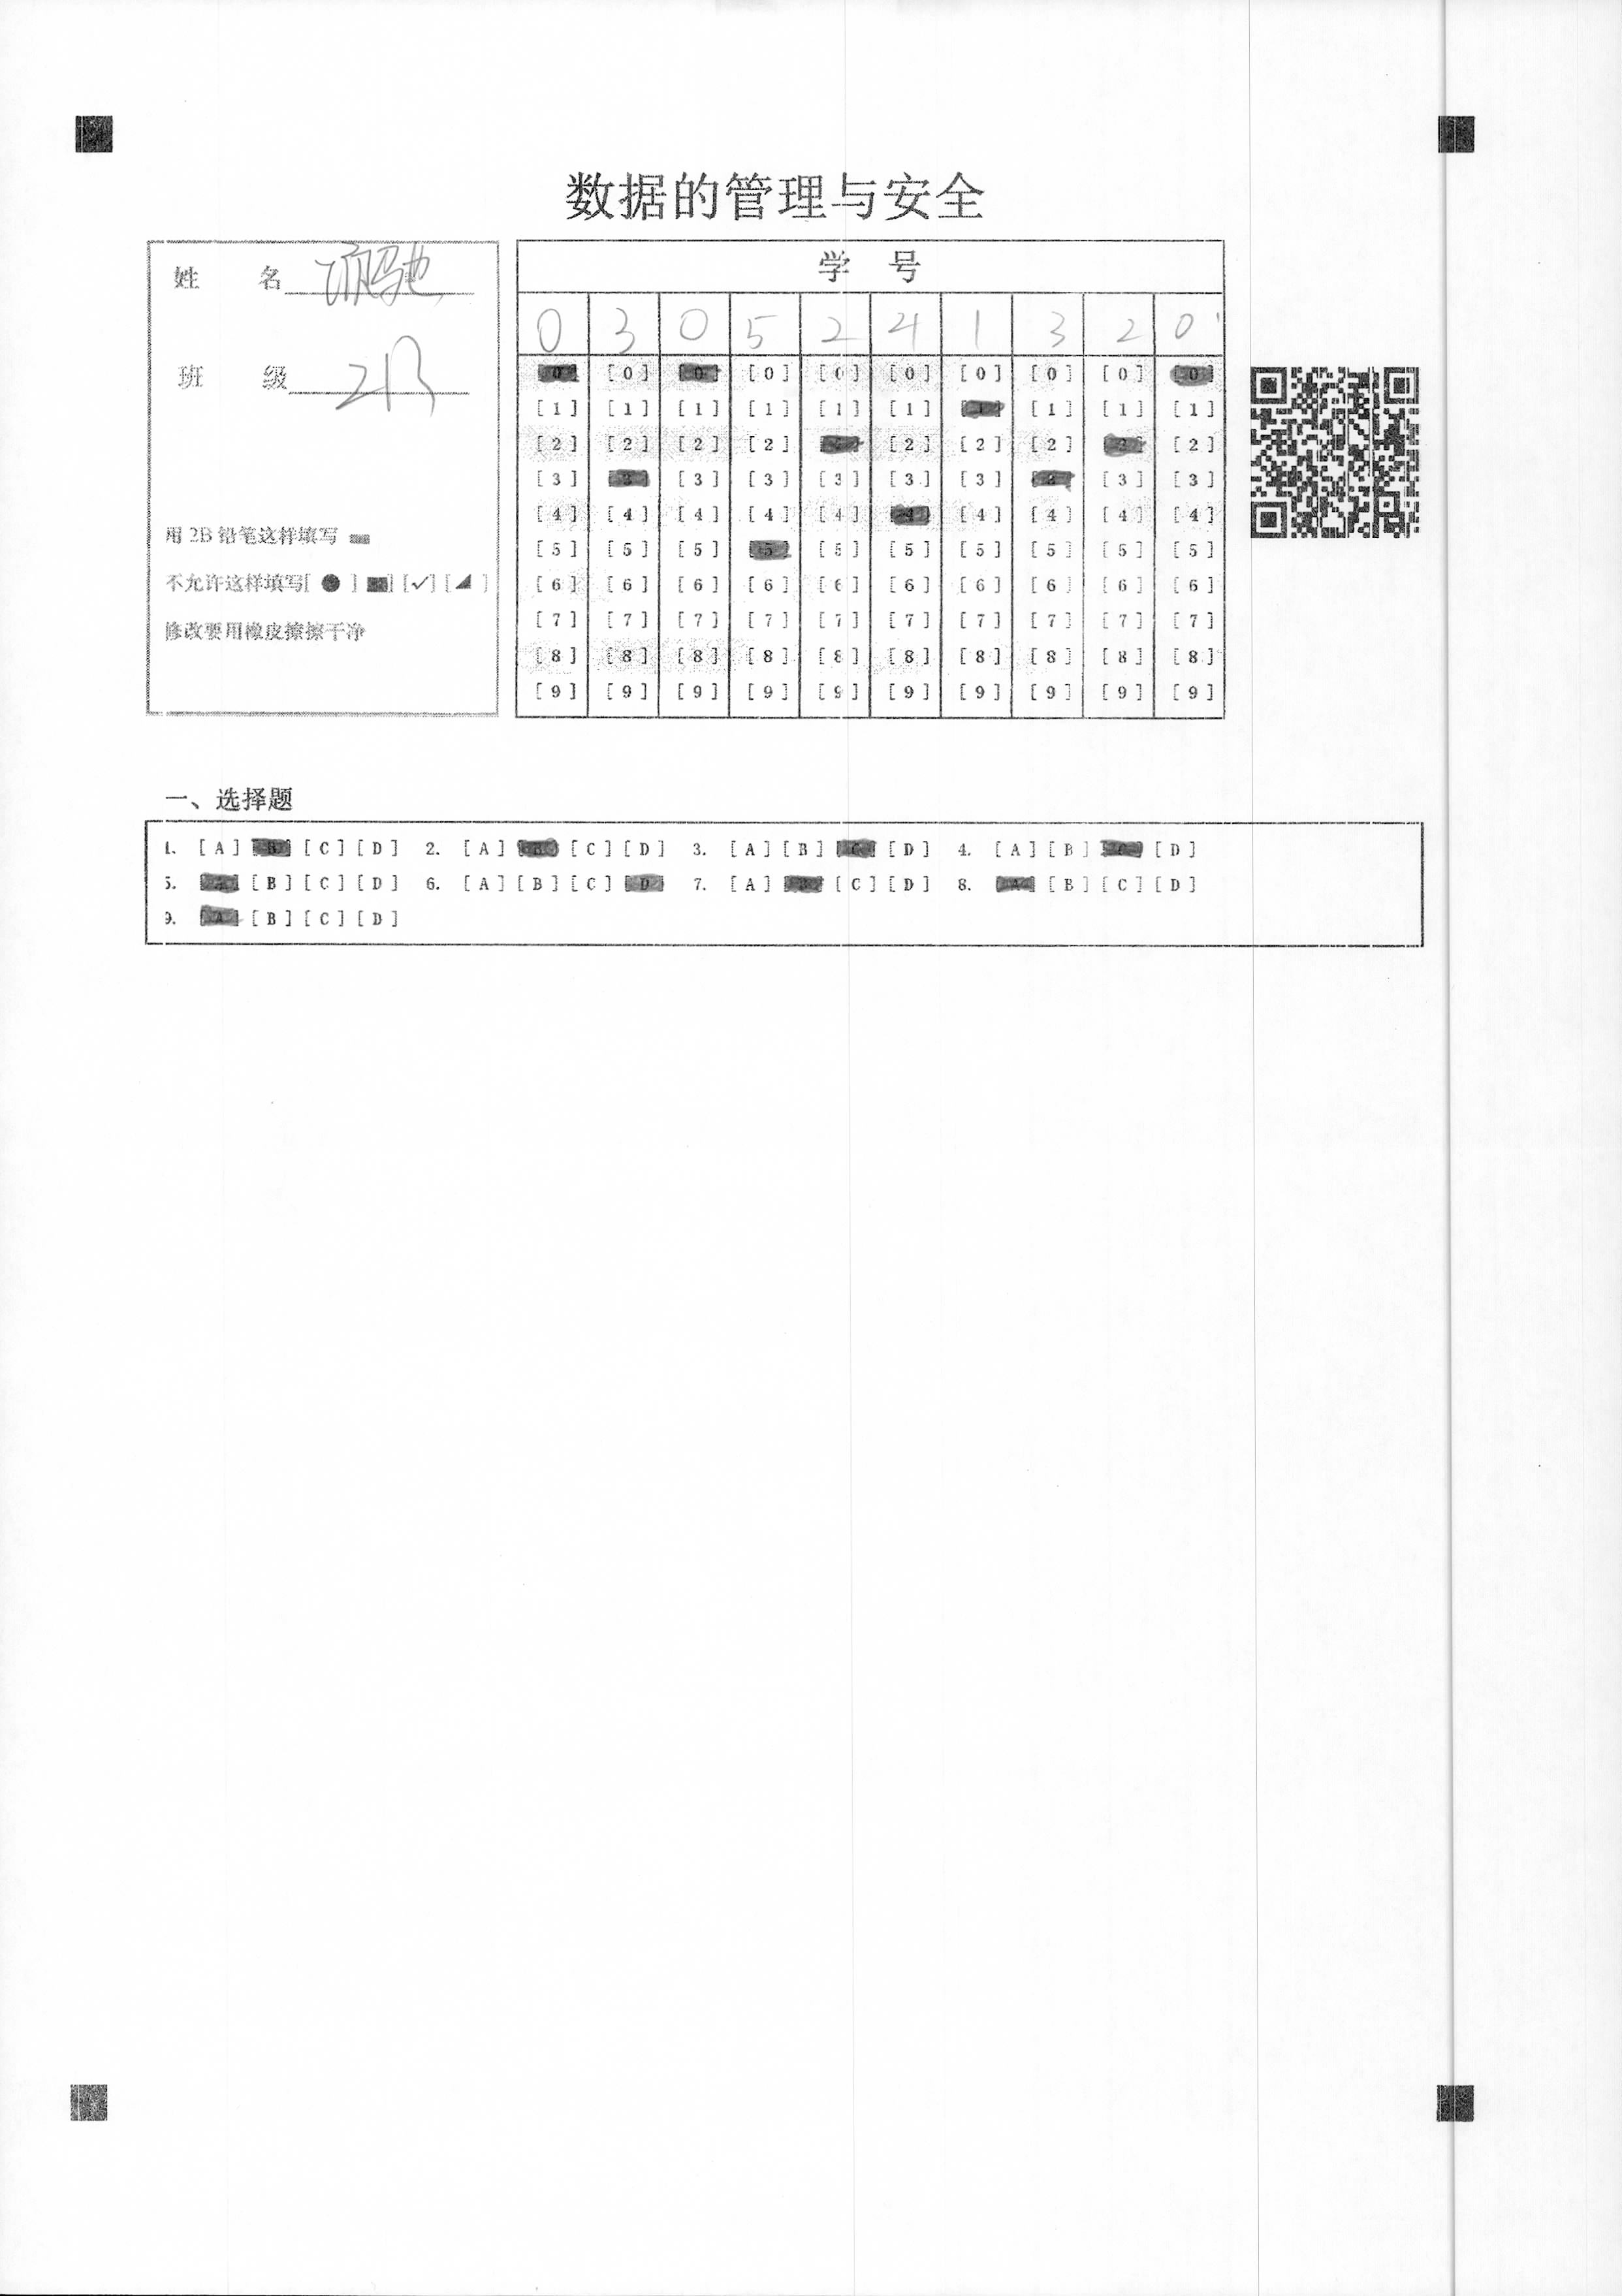 数据的管理与安全
姓 名
班 级
用 2B 铅笔这样填写
不允许这样填写[ ● ] ■] [✓] [◢ ]
修改要用橡皮擦擦干净
学 号
0 3 0 5 2 4 1 3 2 0
[0] [0] [0] [0] [0] [0] [0] [0] [0] [0]
[1] [1] [1] [1] [1] [1] [1] [1] [1] [1]
[2] [2] [2] [2] [2] [2] [2] [2] [2] [2]
[3] [3] [3] [3] [3] [3] [3] [3] [3] [3]
[4] [4] [4] [4] [4] [4] [4] [4] [4] [4]
[5] [5] [5] [5] [5] [5] [5] [5] [5] [5]
[6] [6] [6] [6] [6] [6] [6] [6] [6] [6]
[7] [7] [7] [7] [7] [7] [7] [7] [7] [7]
[8] [8] [8] [8] [8] [8] [8] [8] [8] [8]
[9] [9] [9] [9] [9] [9] [9] [9] [9] [9]
一、选择题
1. [A] [B] [C] [D] 2. [A] [B] [C] [D] 3. [A] [B] [C] [D] 4. [A] [B] [C] [D]
5. [A] [B] [C] [D] 6. [A] [B] [C] [D] 7. [A] [B] [C] [D] 8. [A] [B] [C] [D]
9. [A] [B] [C] [D]